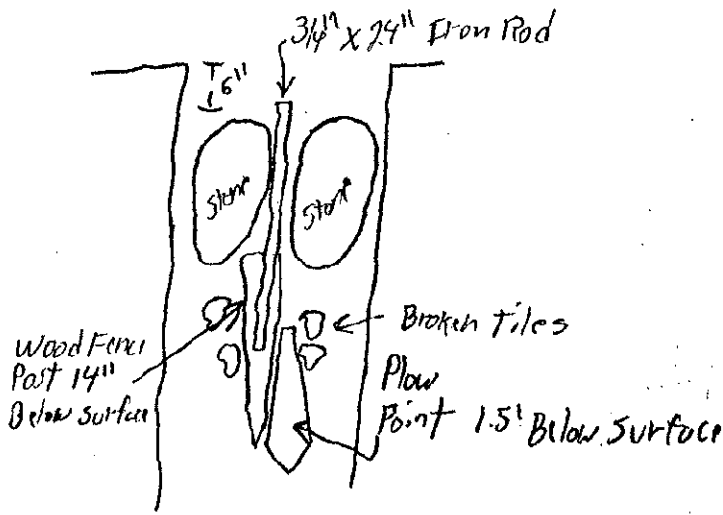 3/4" x 24" Iron Rod
6"
Stone
Stone
Broken Tiles
Wood Fence
Post 14"
Below Surface
Plow
Point 1.5' Below Surface